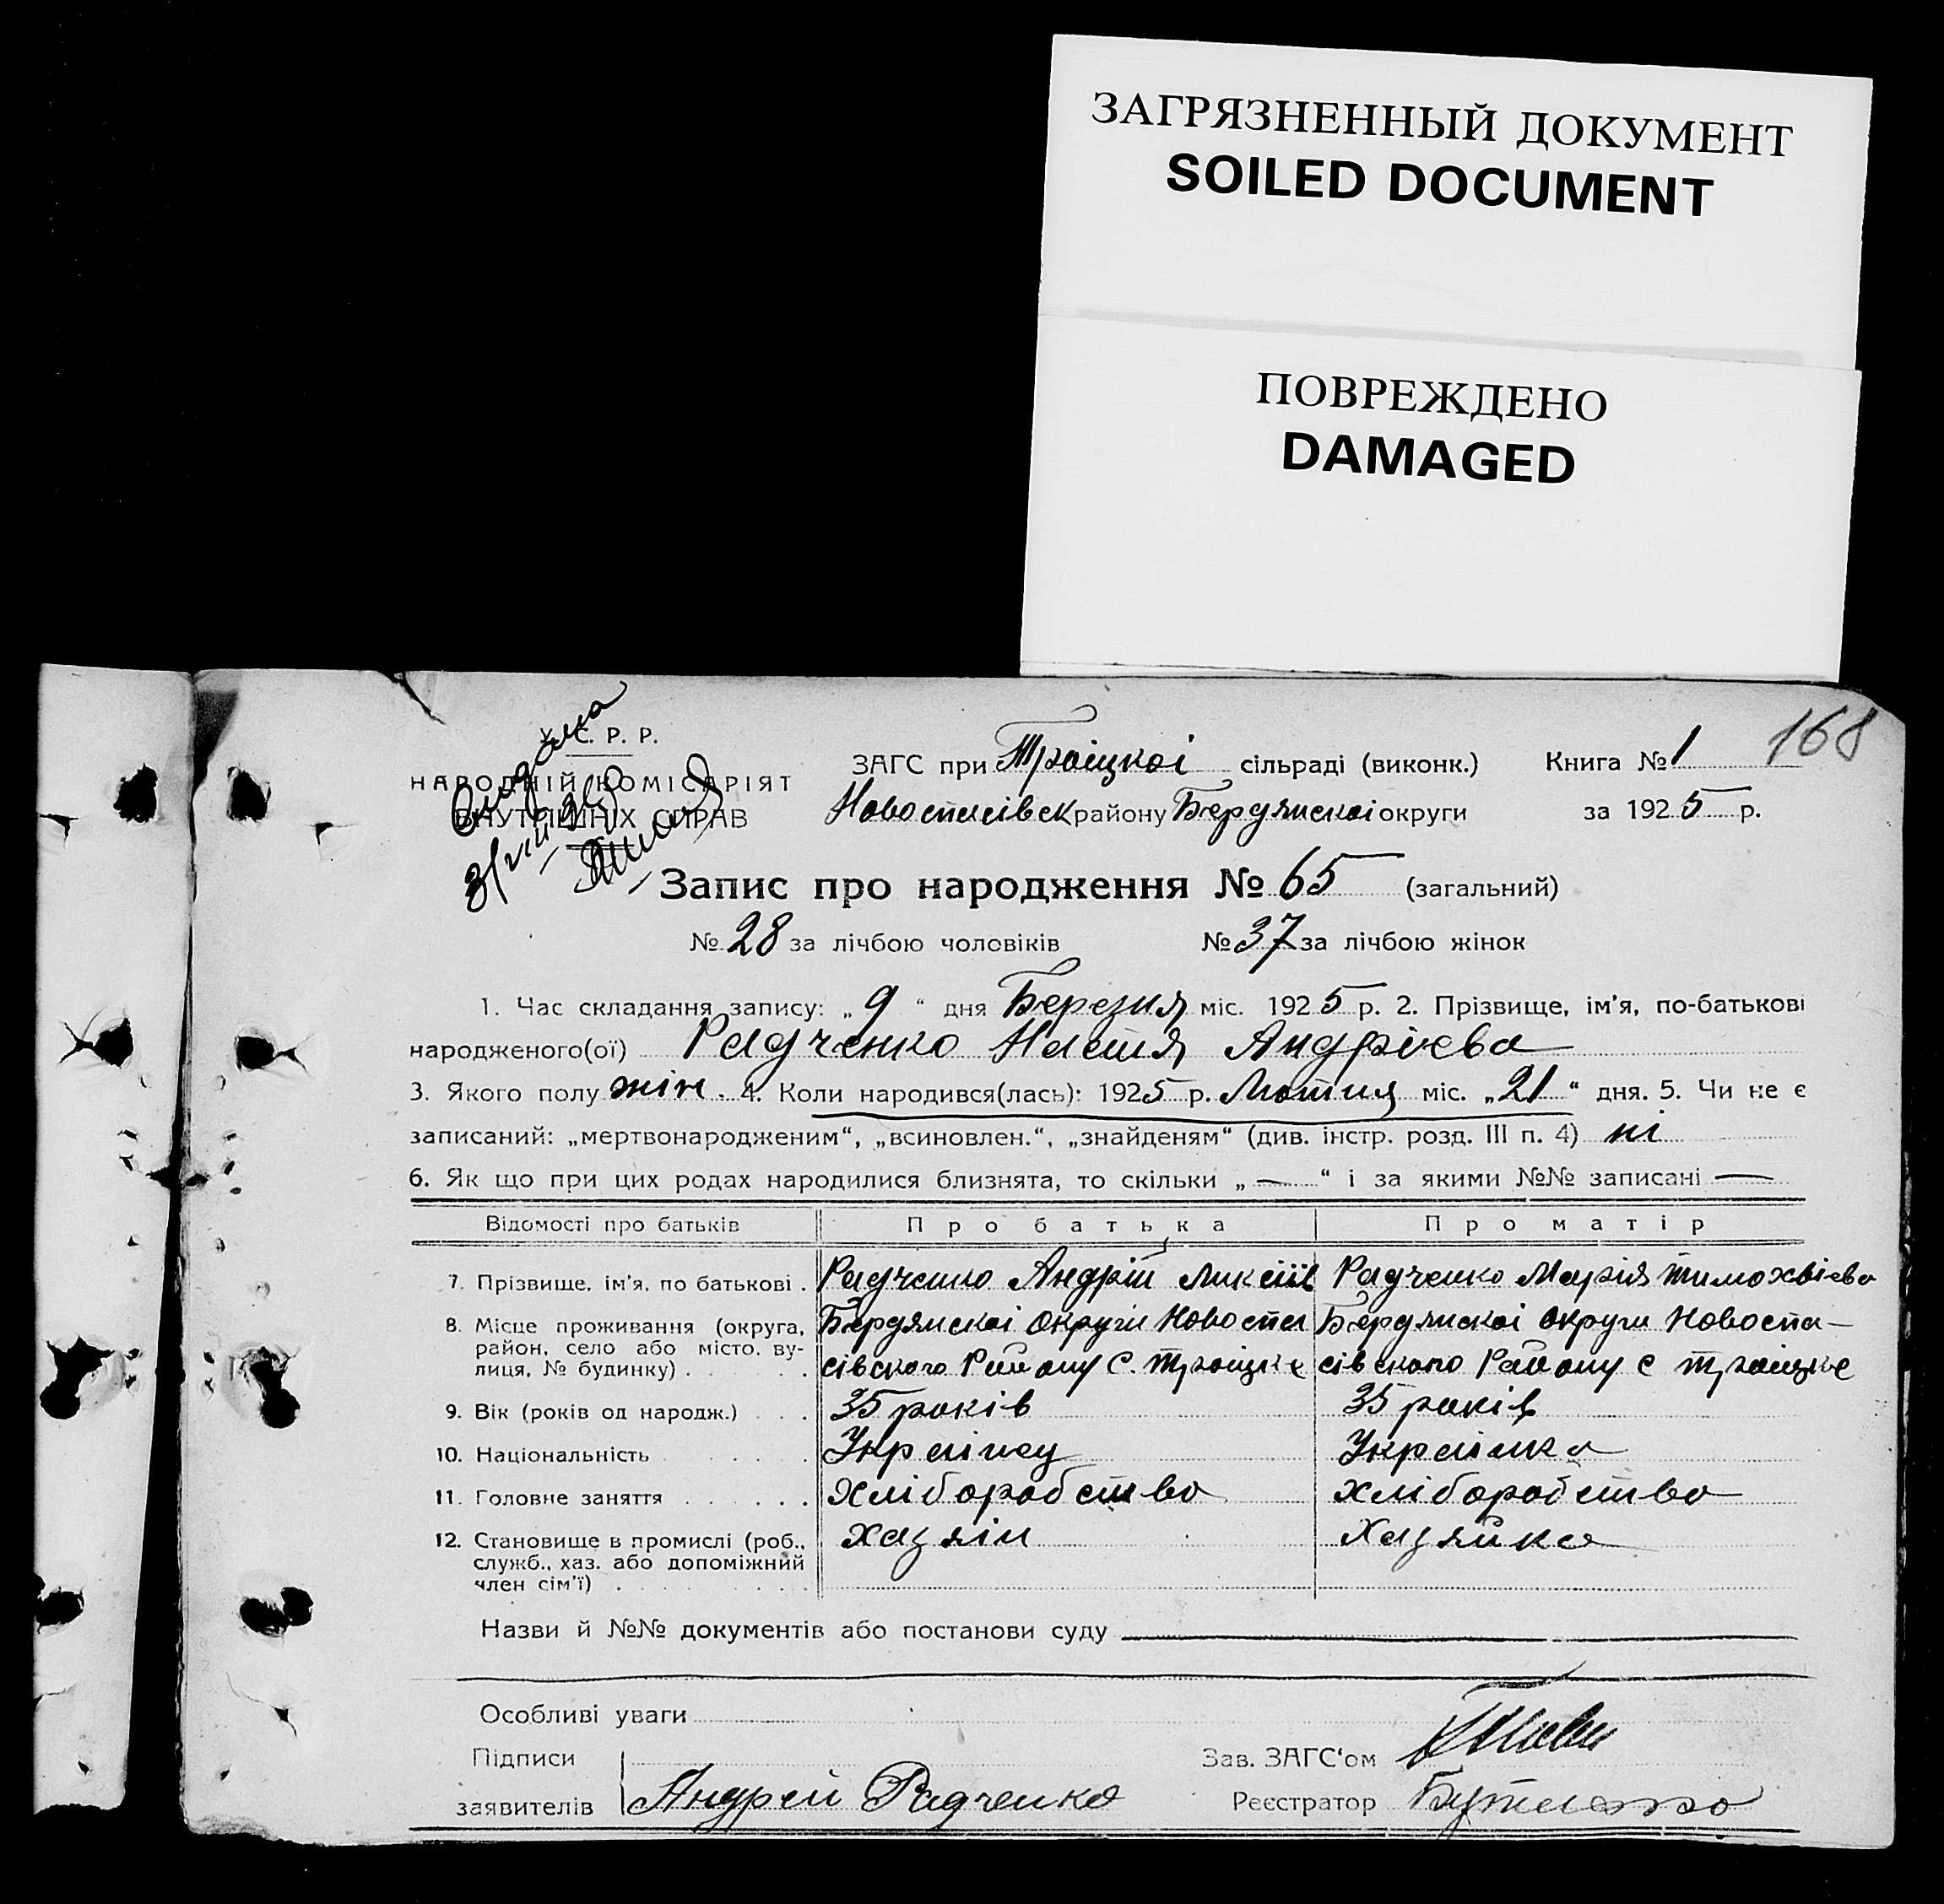 ЗАГРЯЗНЕННЫЙ ДОКУМЕНТ
SOILED DOCUMENT
ПОВРЕЖДЕНО
DAMAGED
168
У. С. Р. Р.
НАРОДНІЙ КОМІСАРІЯТ
ВНУТРІШНІХ СПРАВ
ЗАГС при Троіцкоі сільраді (виконк.) Книга № 1
Новоспасівск району Бердянскоі округи за 1925 р.
Запис про народження № 65 (загальний)
№ 28 за лічбою чоловіків № 37 за лічбою жінок
1. Час складання запису: „9“ дня Березня міс. 1925 р. 2. Прізвище, ім'я, по-батькові
народженого(ої) Радченко Настя Андрієва
3. Якого полу жін. 4. Коли народився(лась): 1925 р. Лютня міс. „21“ дня. 5. Чи не є
записаний: „мертвонародженим“, „всиновлен.“, „знайденям“ (див. інстр. розд. III п. 4) ні
6. Як що при цих родах народилися близнята, то скільки „—“ і за якими №№ записані —
Відомості про батьків Про батька Про матір
7. Прізвище, ім'я, по батькові . Радченко Андрій Ликсіів Радченко Марія Тимохвієва
8. Місце проживання (округа, Бердянскоі Округи Новоспа Бердянскоі Округи Новоспа-
район, село або місто, ву-
лиця, № будинку) . сівского Району С. Троіцке сівского Району С Троіцке
9. Вік (років од народж.) . . 35 років 35 років
10. Національність . . . . . Украінец Украінка
11. Головне заняття . . . . . . Хліборобство Хліборобство
12. Становище в промислі (роб., Хазяін Хазяйка
служб., хаз. або допоміжний
член сім'ї) . . . . . .
Назви й №№ документів або постанови суду
Особливі уваги
Підписи Зав. ЗАГС'ом
заявителів Андрей Радченко Реєстратор